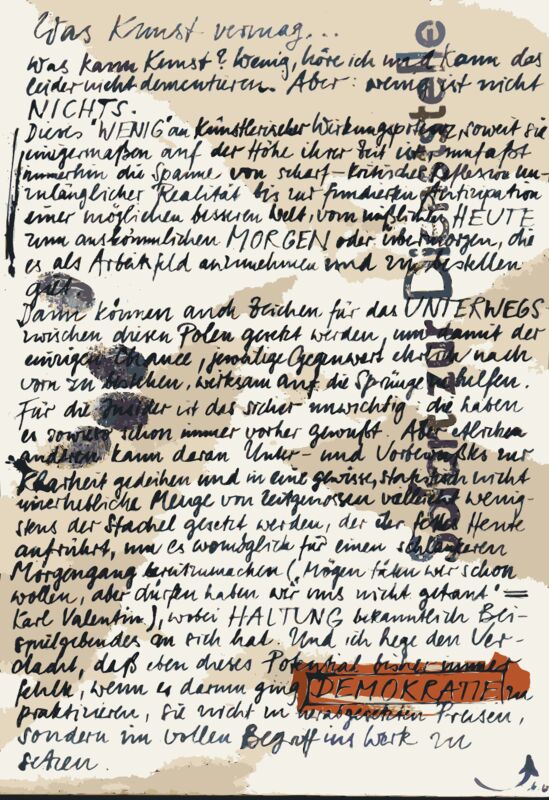 Was Kunst vermag...
Was kann Kunst? Wenig, höre ich und kann das
leider nicht dementieren. Aber: wenig ist nicht
NICHTS.
Dieses "WENIG" an künstlerischer Wirkungspotenz, soweit sie
einigermaßen auf der Höhe ihrer Zeit ist, umfaßt
immerhin die Spanne von scharf-kritischer Reflexion un-
zulänglicher Realität bis zur fundierten Antizipation
einer möglichen besseren Welt, vom mißlichen HEUTE
zum auskömmlichen MORGEN oder übermorgen, die
es als Arbeitsfeld anzunehmen und zu bestellen
gilt.
Dann können auch Zeichen für das UNTERWEGS
zwischen diesen Polen gesetzt werden, um damit der
einzigen Chance, jeweilige Gegenwart ehrlich nach
vorn zu bestehen, wirksam auf die Sprünge zu helfen.
Für die Insider ist das sicher unwichtig - die haben
es sowieso schon immer vorher gewußt. Aber etlichen
anderen kann daraus Unter- und Vorbewußtes zur
Klarheit gedeihen und in eine gewisse, statistisch nicht
unerhebliche Menge von Zeitgenossen vielleicht wenig-
stens der Stachel gesetzt werden, der ihr fettes Heute
aufrührt, um es womöglich für einen schlankeren
Morgengang bereitzumachen ("Mögen täten wir schon
wollen, aber dürfen haben wir uns nicht getraut" =
Karl Valentin), wobei HALTUNG bekanntlich Bei-
spielgebendes an sich hat. Und ich hege den Ver-
dacht, daß eben dieses Potential bisher immer
fehlte, wenn es darum ging DEMOKRATIE zu
praktizieren, sie nicht zu herabgesetzten Preisen,
sondern im vollen Begriff ins Werk zu
setzen.
zur Dienststelle